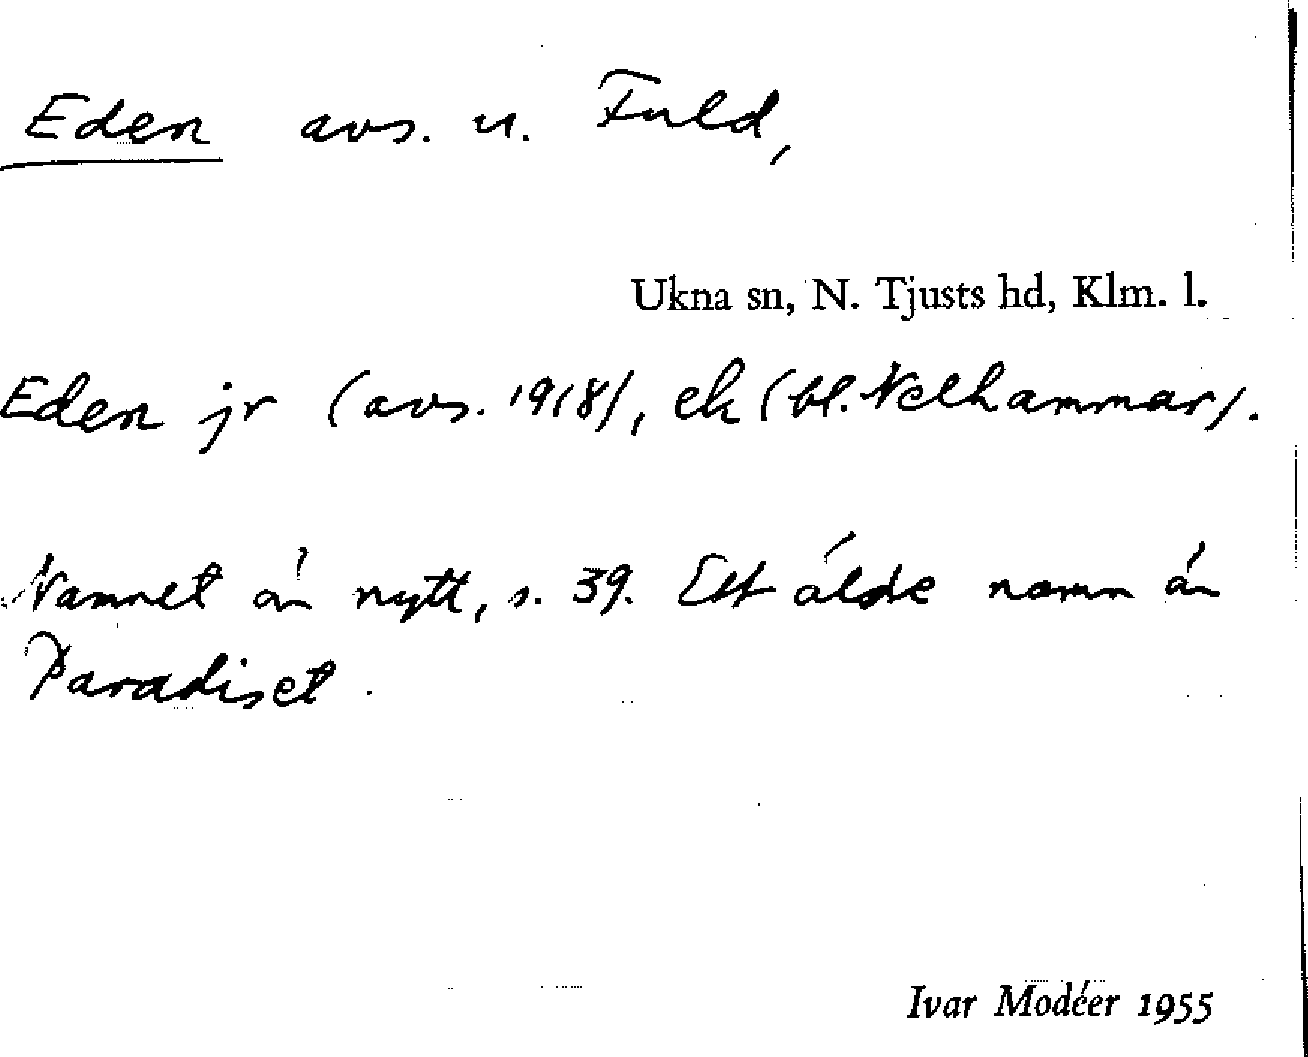 Eden avs. u. Fuld,
Ukna sn, N. Tjusts hd, Klm. l.
Eden jr (avs. 1918), ek (bl. Nelhammar).
Namnet är nytt, s. 39. Ett äldre namn är
Paradiset.
Ivar Modéer 1955